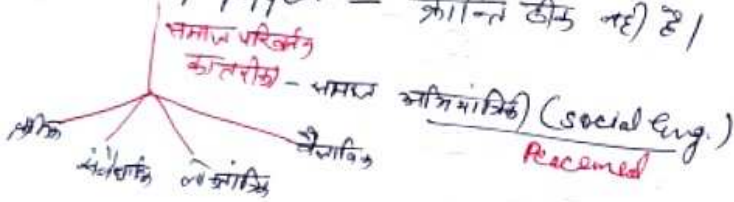 — क्रान्ति ठीक नहीं है।
समाज परिवर्तन
का तरीका - समाज अभियांत्रिकी (social Eng.)
Peaceful
क्रमिक संवैधानिक लोकतांत्रिक वैज्ञानिक